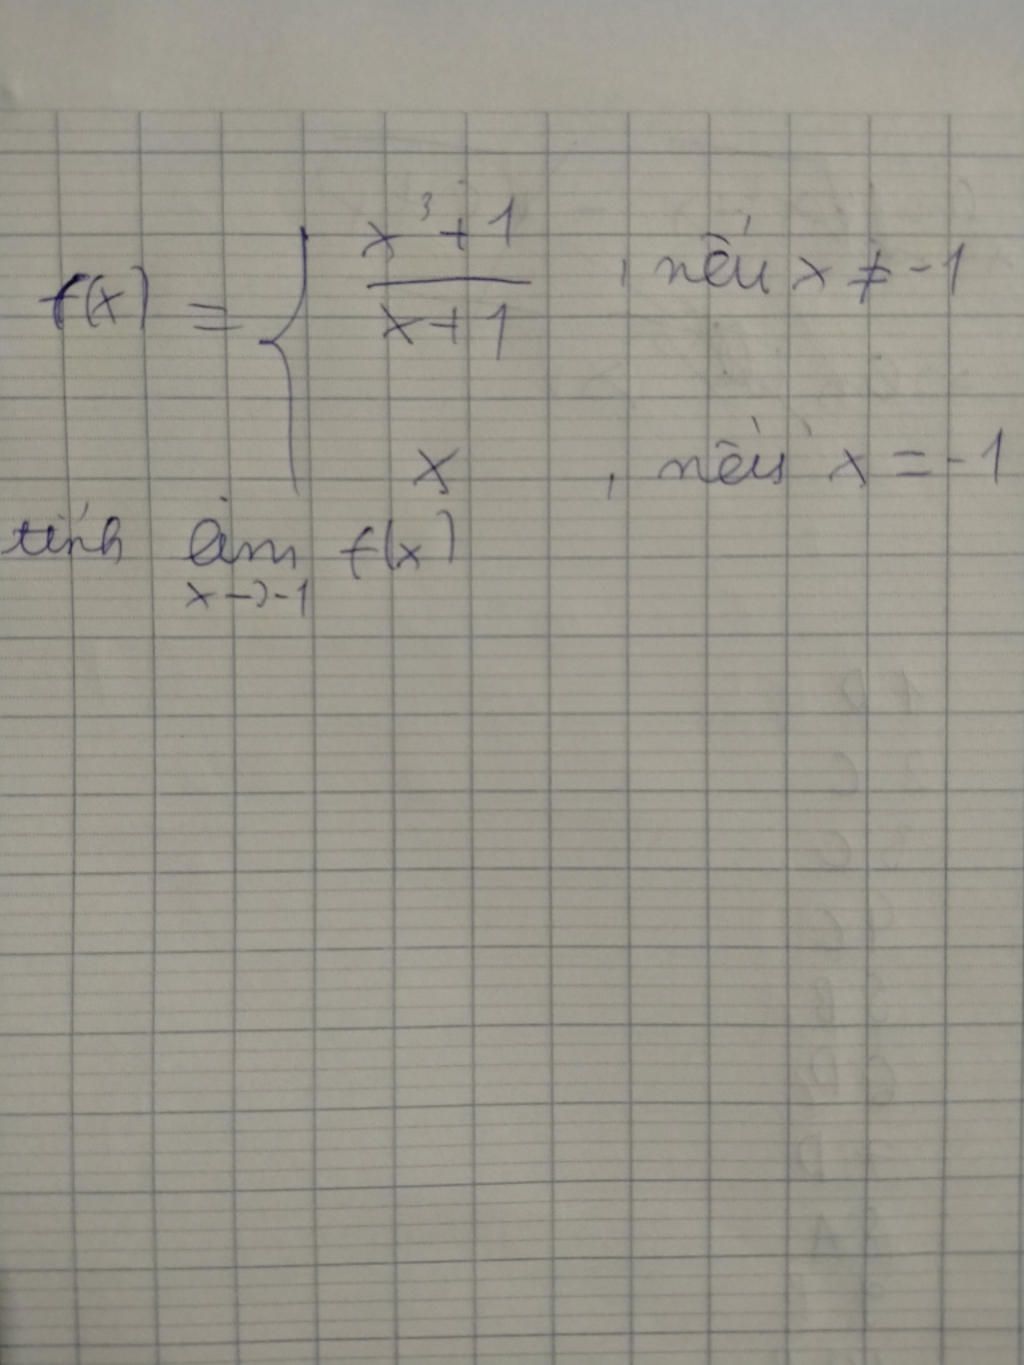 f(x) = { x³ + 1 / x + 1 , nếu x ≠ -1
x , nếu x = -1
tính lim f(x)
x → -1